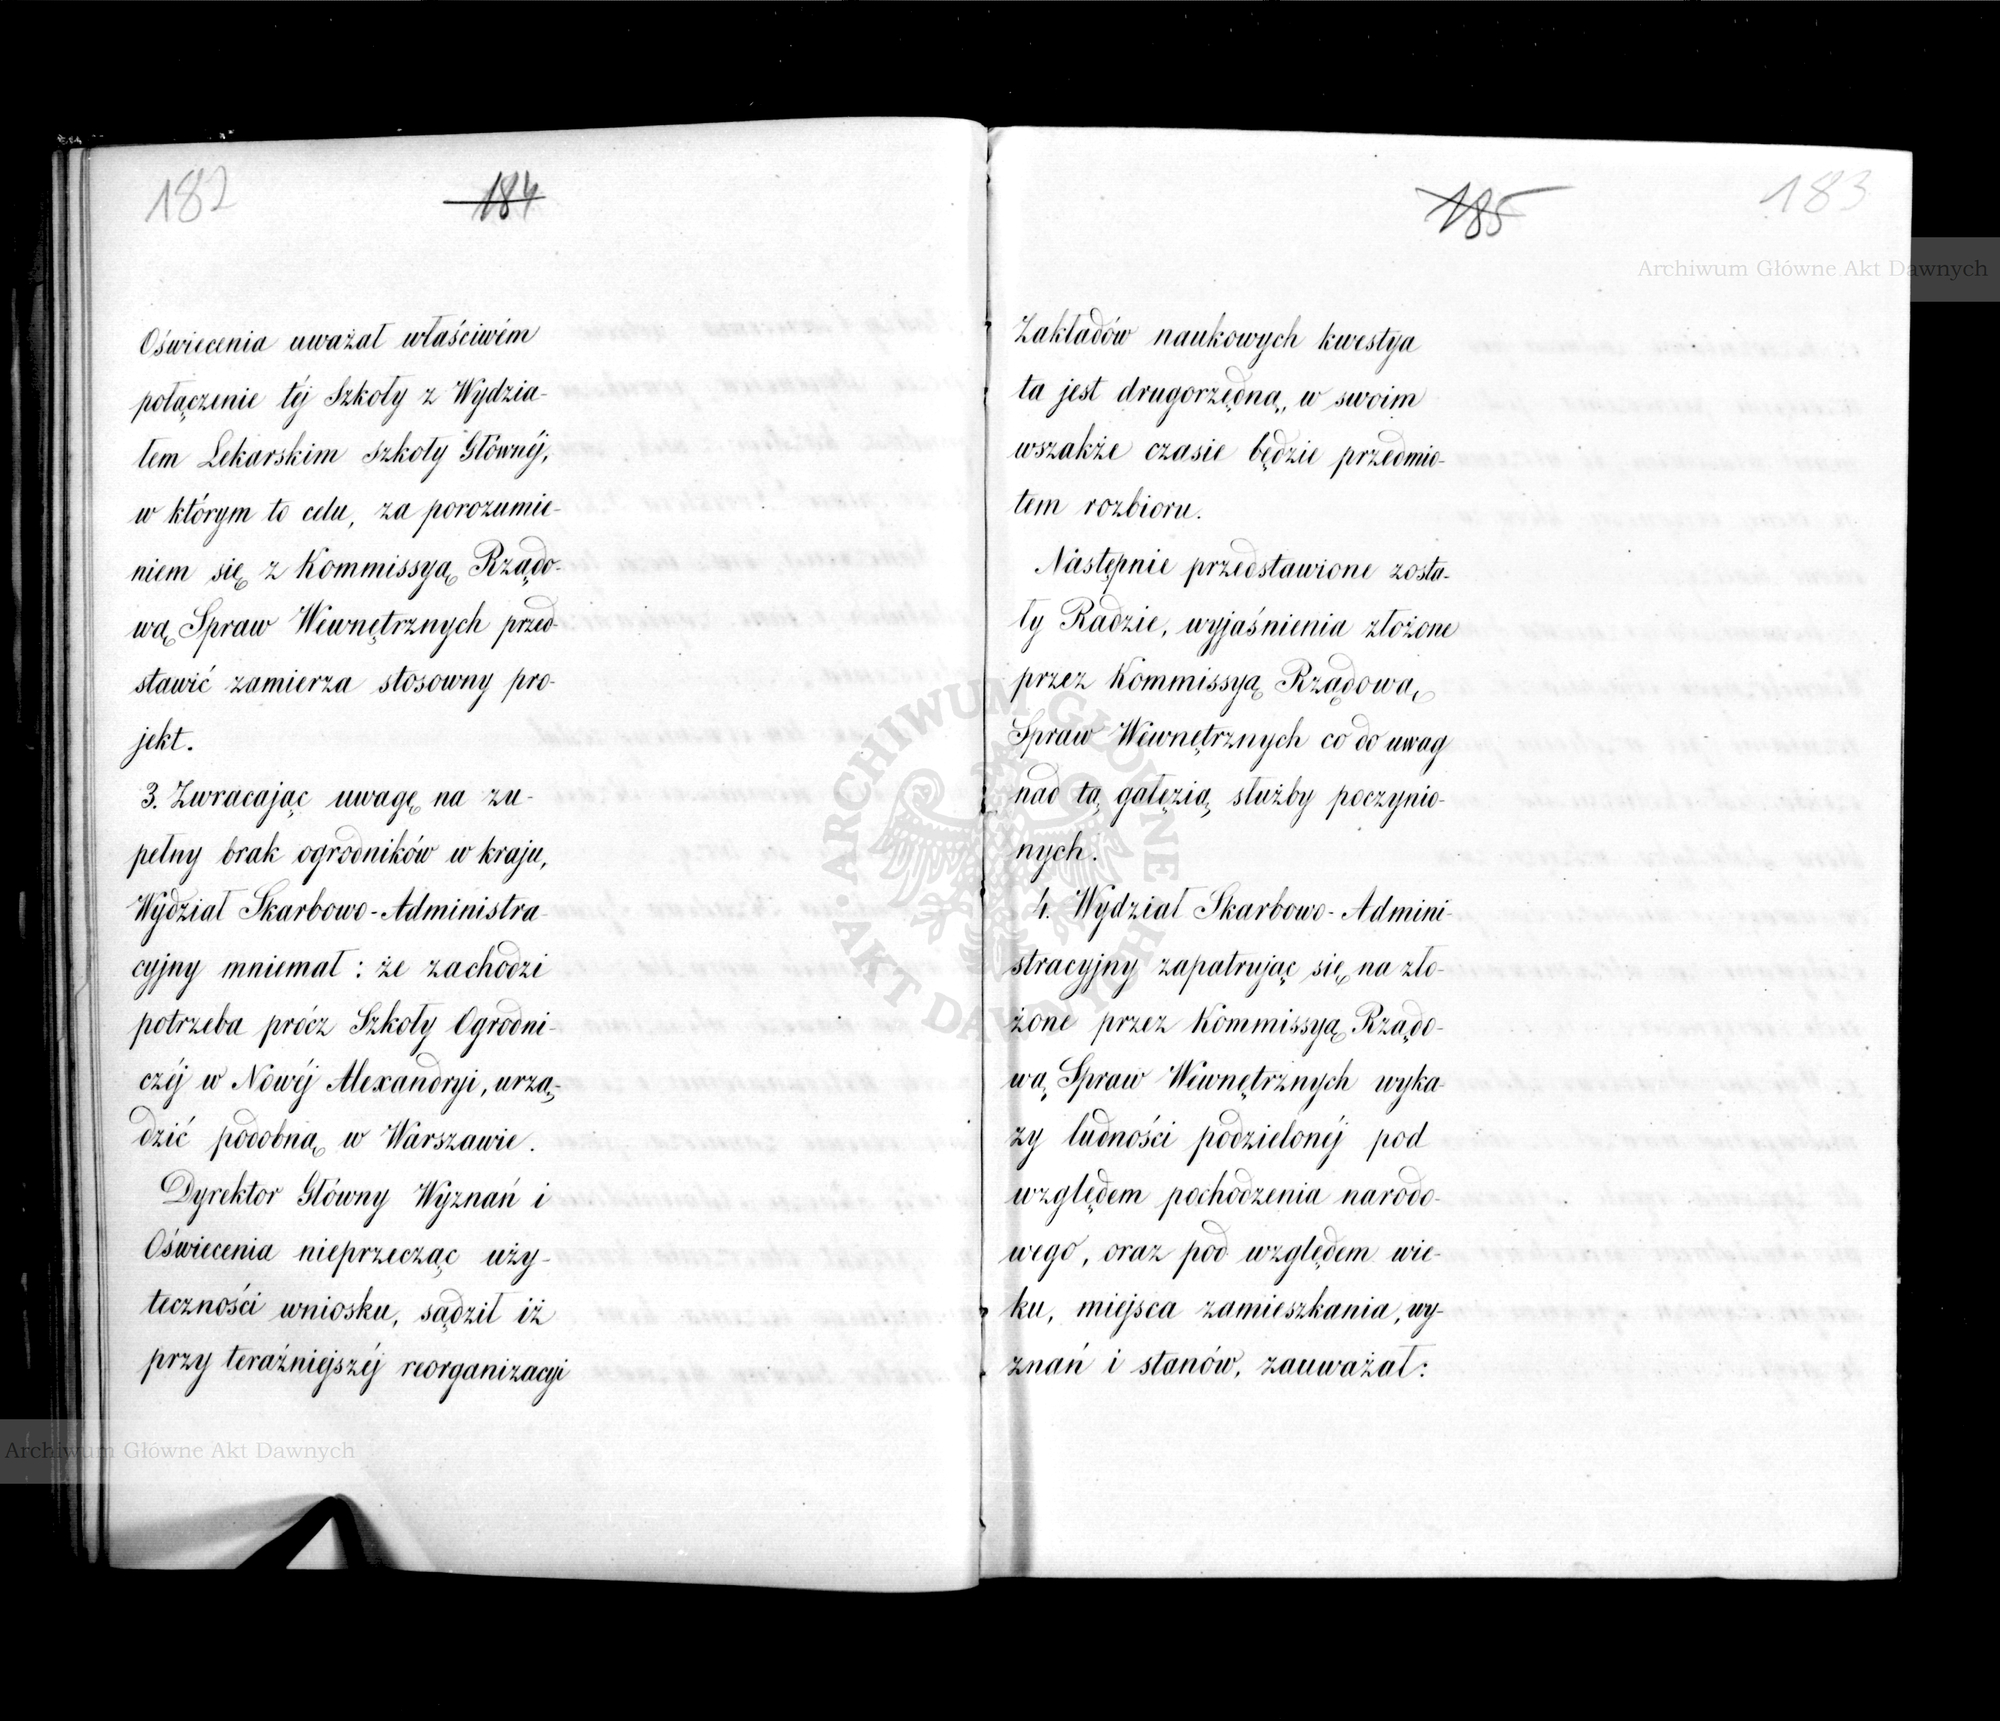 182
184
Oświecenia uważał właściwém
połączenie téj Szkoły z Wydzia-
łem Lekarskim Szkoły Głównéj,
w którym to celu, za porozumie-
niem się z Kommissyą Rządo-
wą Spraw Wewnętrznych przed-
stawić zamierza stosowny pro-
jekt.
3. Zwracając uwagę na zu-
pełny brak ogrodników w kraju,
Wydział Skarbowo-Administra-
cyjny mniemał: że zachodzi
potrzeba prócz Szkoły Ogrodni-
czéj w Nowéj Alexandryi, urzą-
dzić podobną w Warszawie.
Dyrektor Główny Wyznań i
Oświecenia nieprzecząc uży-
teczności wniosku, sądził iż
przy teraźniejszéj reorganizacyi
185
183
Zakładów naukowych kwestya
ta jest drugorzędną, w swoim
wszakże czasie będzie przedmio-
tem rozbioru.
Następnie przedstawione zosta-
ły Radzie, wyjaśnienia złożone
przez Kommissyą Rządową
Spraw Wewnętrznych co do uwag
nad tą gałęzią służby poczynio-
nych.
4. Wydział Skarbowo-Admini-
stracyjny zapatrując się na zło-
żone przez Kommissyą Rządo-
wą Spraw Wewnętrznych wyka-
zy ludności podzielonéj pod
względem pochodzenia narodo-
wego, oraz pod względem wie-
ku, miejsca zamieszkania, wy-
znań i stanów, zauważał:
Archiwum Główne Akt Dawnych
Archiwum Główne Akt Dawnych
ARCHIWUM GŁÓWNE
AKT DAWNYCH